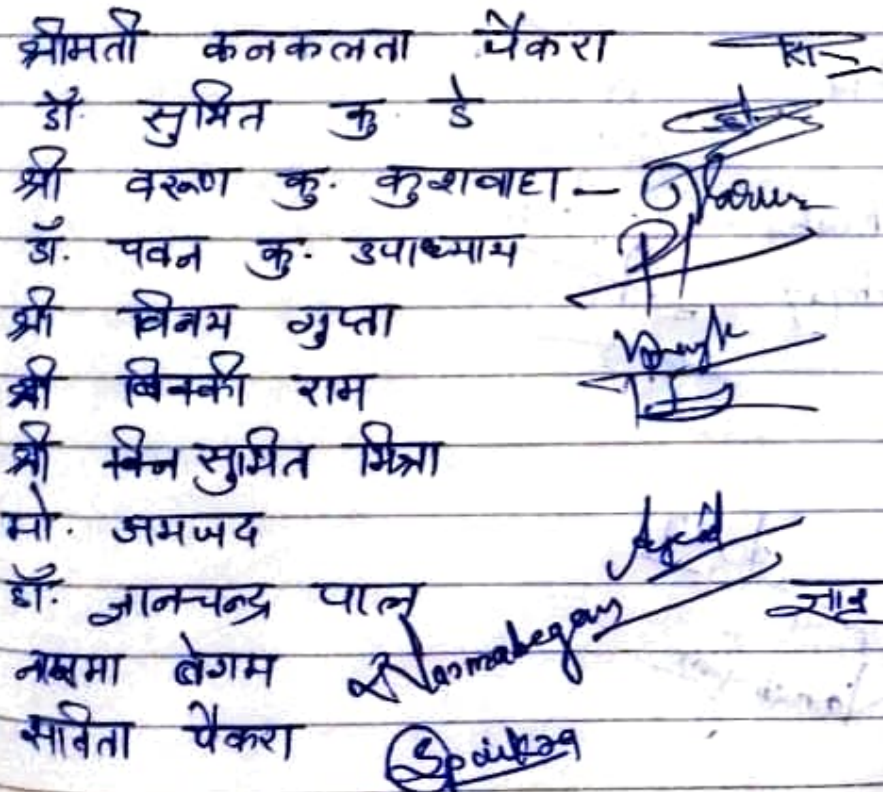 श्रीमती कनकलता पैकरा
डॉ. सुमित कु. डे
श्री वरूण कु. कुशवाहा -
डॉ. पवन कु. उपाध्याय
श्री विनय गुप्ता
श्री विक्की राम
श्री सुमित मित्रा
मो. अमजद
डॉ. ज्ञानचन्द्र पाल
नाजमा बेगम Nazmabegam
सविता पैकरा Spaikra